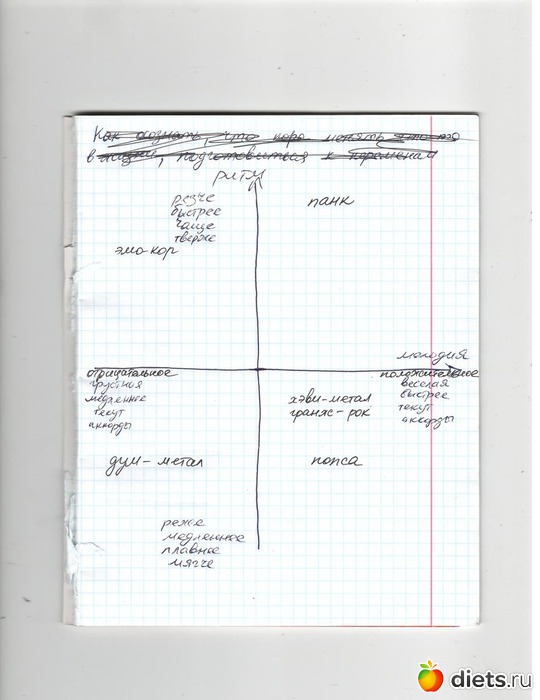 Как осознать, что пора менять что-то
в жизни, подготовиться к переменам
ритм
резче
быстрее
чаще
тверже
панк
эмо-кор
мелодия
отрицательное
грустная
медленнее
текут
аккорды
положительное
веселая
быстрее
текут
аккорды
хэви-метал
гранж-рок
дум-метал
попса
реже
медленнее
плавнее
мягче
diets.ru